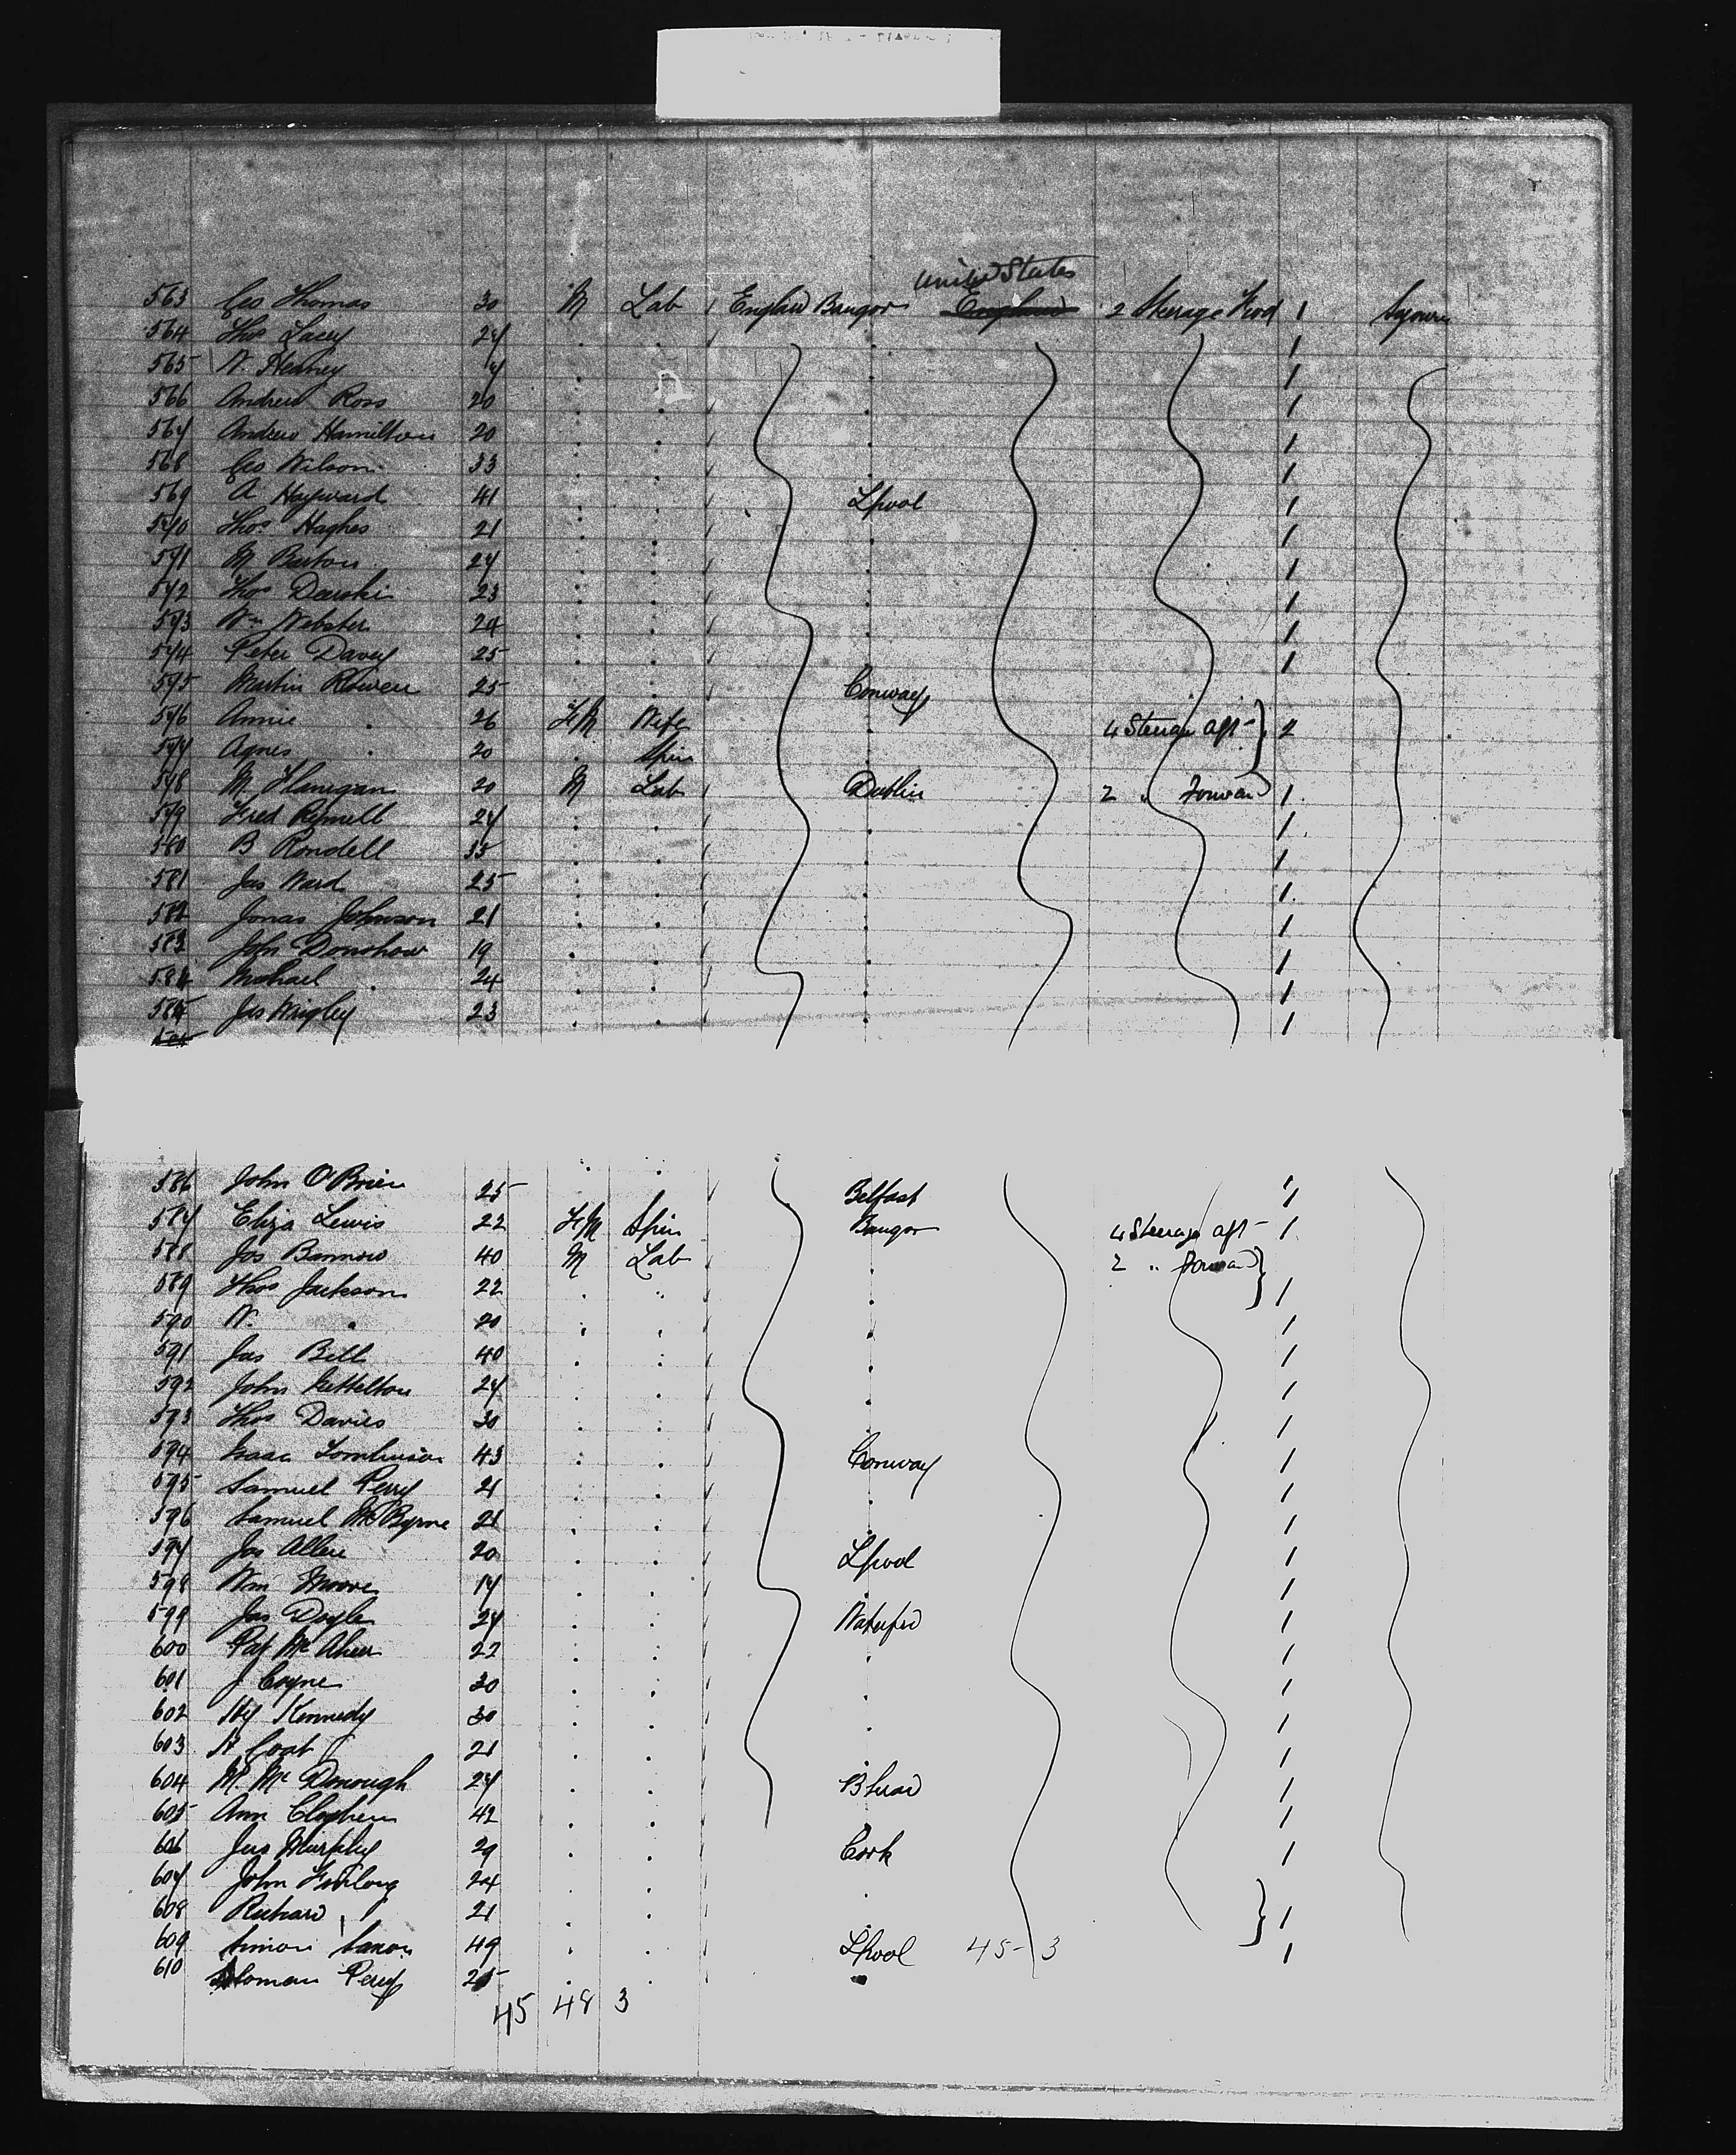 United States
563 Geo Thomas 30 M Lab 1 England Bangor England 2 Steerage Fwd 1
564 Thos Lacey 27 1
565 W. Heaney 1
566 Andrew Ross 20 1
567 Andrew Hamilton 20 1
568 Geo Wilson 33 1
569 A Hayward 41 Lpool 1
570 Thos Hughes 21 1
571 M Burton 27 1
572 Thos 23 1
573 Wm Webster 24 1
574 Peter Davey 25 1
575 Martin Rowen 25 Conway
576 Annie " 26 FM Wife 4 Steerage aft } 2
577 Agnes " 20 Spin
578 M Flanigan 20 M Lab Dublin 2 " Forward 1
579 Fred 27 1
580 B Rondell 35 1
581 Jas Ward 25 1
582 Jonas Johnson 21 1
583 John Donohow 19 1
584 Michael " 24 1
585 Jas Wrigley 23 1
586 John O'Brien 25 Belfast 1
587 Eliza Lewis 22 FM Spin Bangor 4 Steerage aft 1
588 Jos 40 M Lab 2 " Forward }
589 Thos Jackson 22 1
590 W. " 20 1
591 Jas Bell 40 1
592 John 27 1
593 Thos Davies 30 1
594 Isaac Tomlinson 43 Conway 1
595 Samuel Perry 21 1
596 Samuel McByrne 21 1
597 Jos Allen 20 Lpool 1
598 Wm Moore 17 1
599 Jas Doyle 27 1
600 Pat McAheir 22 1
601 J Coyne 30 1
602 Hy Kennedy 30 1
603 21 1
604 M. McDonough 27 1
605 Ann 42 1
606 Jas Murphy 29 Cork 1
607 John Furlong 24 }
608 Richard " 21 1
609 Simon Saxon 49 Lpool 45-3 1
610 Soloman Perry 25
45 48 3